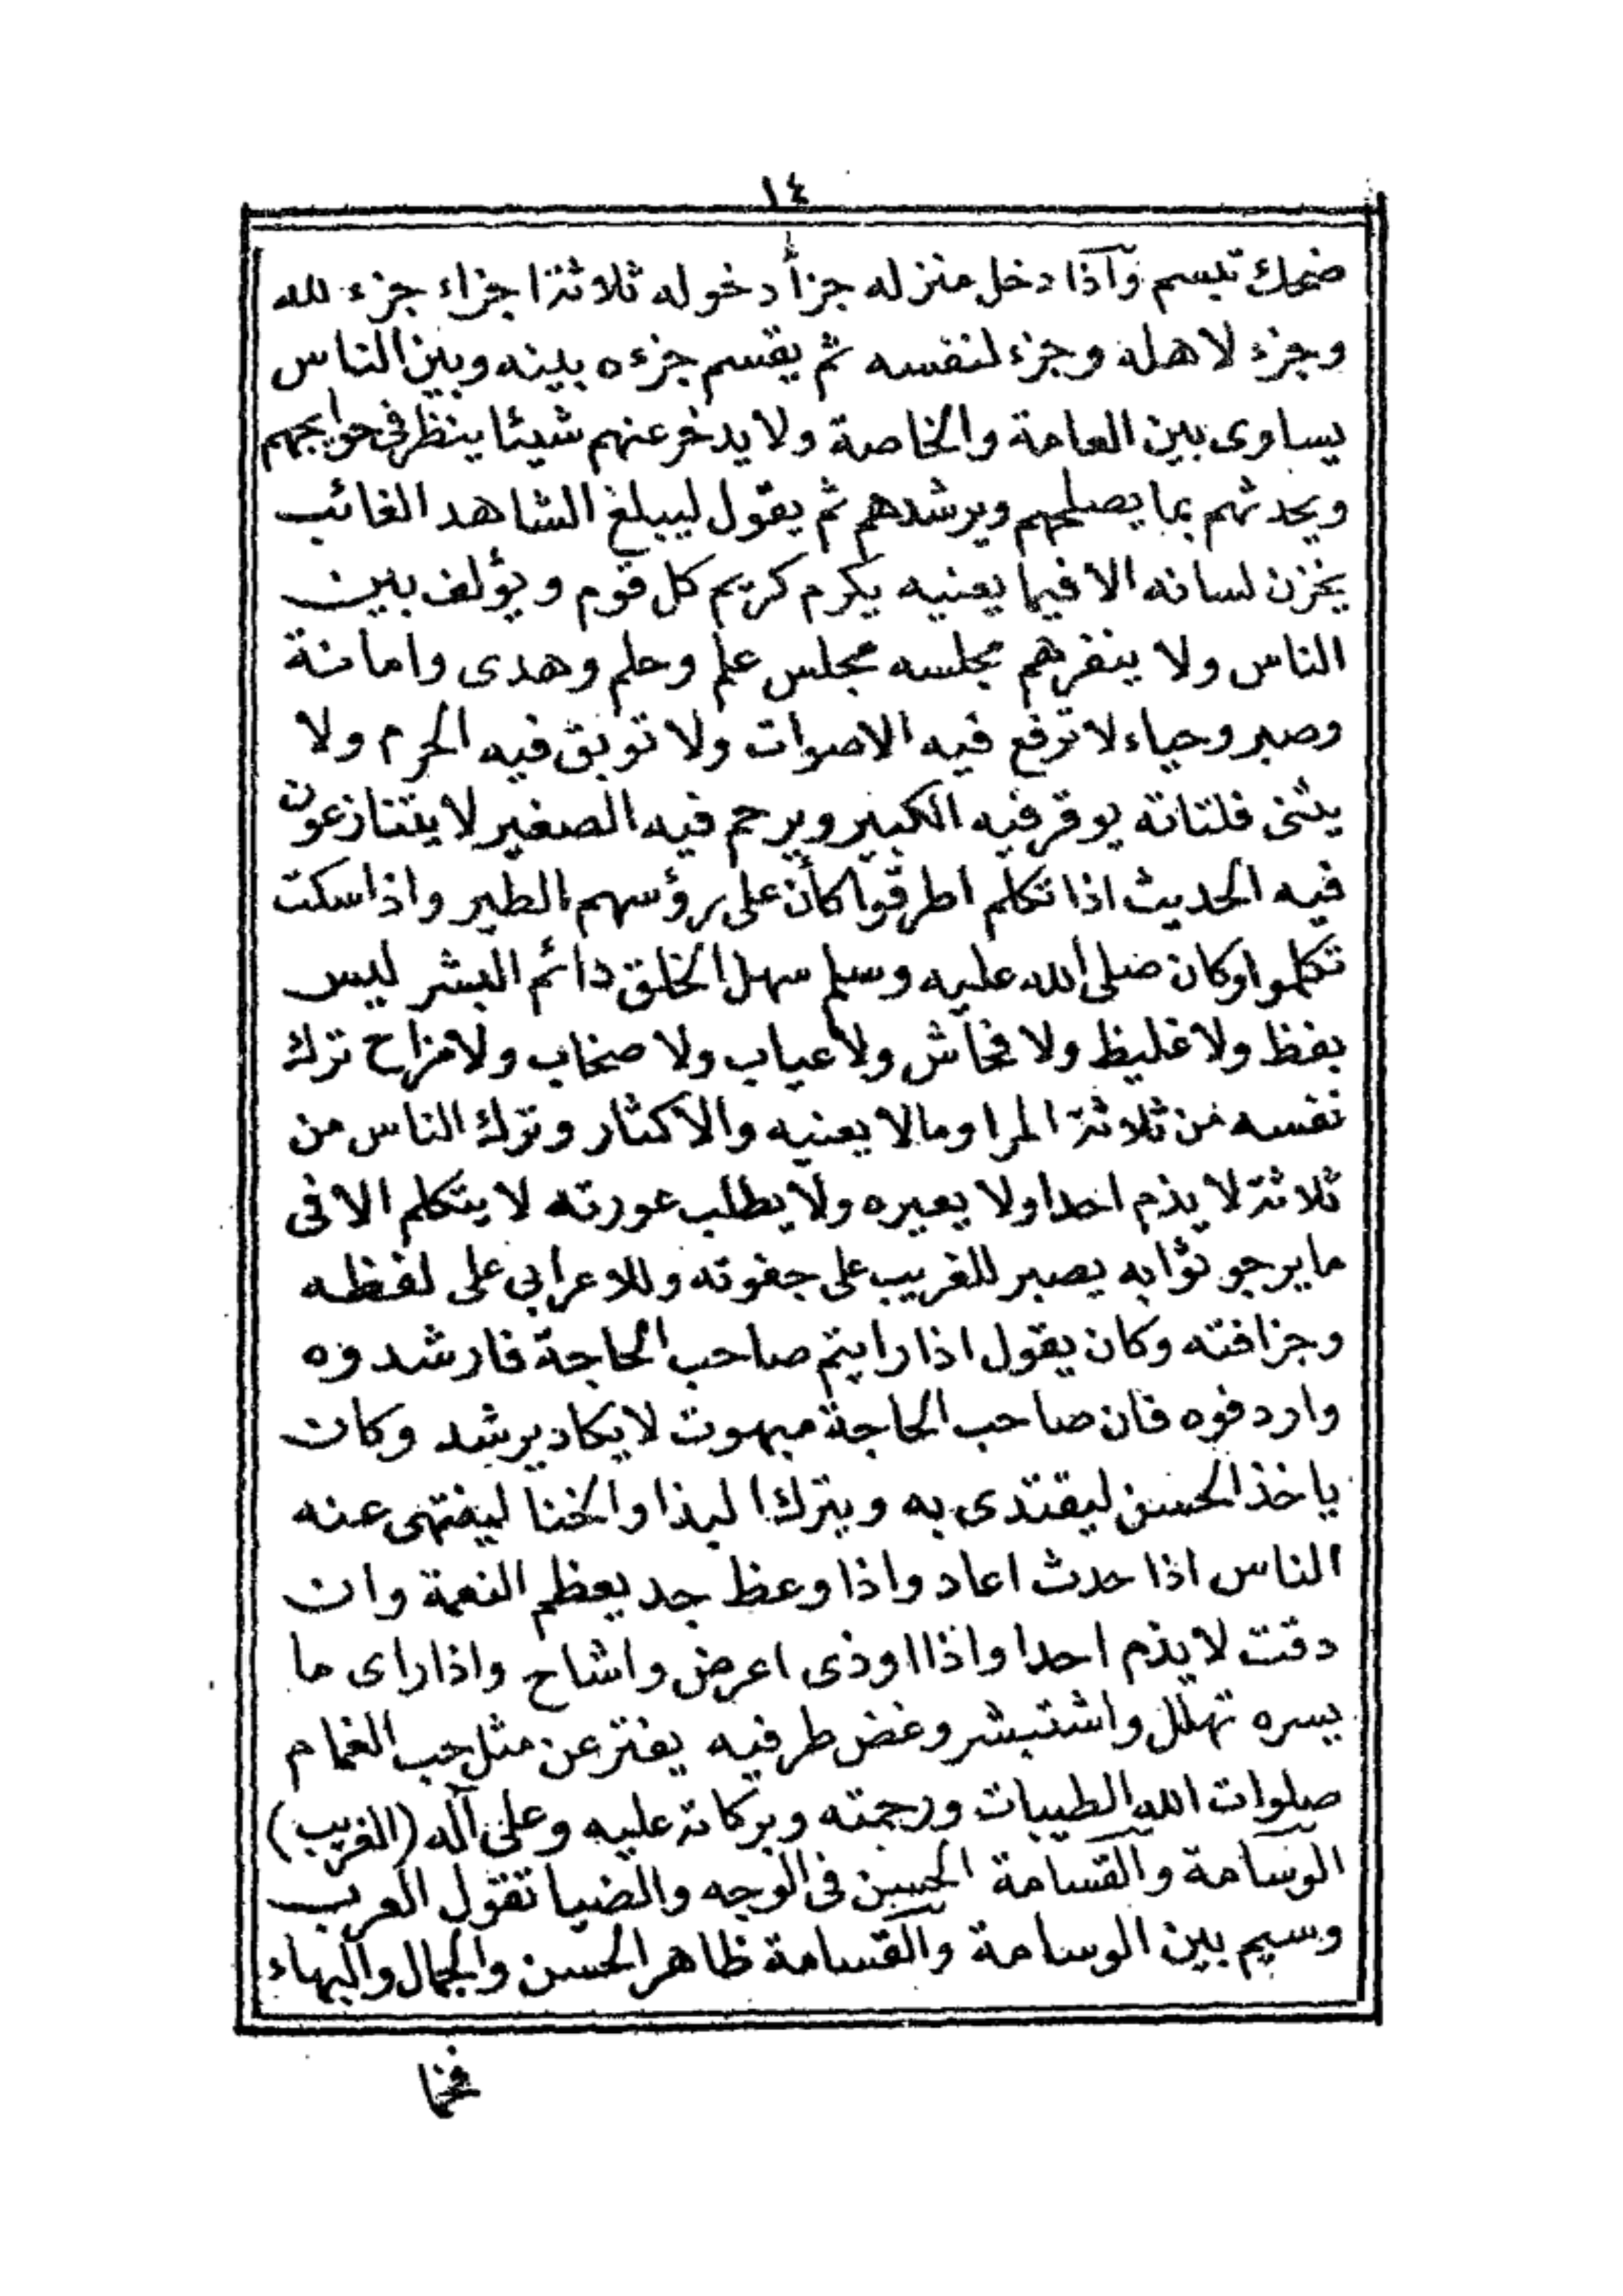 ١٤
ضحك تبسم وآذا دخل منزله جزأ دخوله ثلاثة اجزاء جزء لله
وجزء لاهله وجزء لنفسه ثم يقسم جزءه بينه وبين الناس
يساوى بين العامة والخاصة ولا يدخر عنهم شيئا ينظر فى حوايجهم
ويحدثهم بما يصلحهم ويرشدهم ثم يقول ليبلغ الشاهد الغائب
يخزن لسانه الا فيما يعنيه يكرم كريم كل قوم ويؤلف بين
الناس ولا ينفرهم مجلسه مجلس علم وحلم وهدى وامانة
وصبر وحياء لا ترفع فيه الاصوات ولا توبق فيه الحرم ولا
يثنى فلتاته يوقر فيه الكبير ويرحم فيه الصغير لا يتنازعون
فيه الحديث اذا تكلم اطرقوا كأن على رؤسهم الطير واذا سكت
تكلموا وكان صلى الله عليه وسلم سهل الخلق دائم البشر ليس
بفظ ولا غليظ ولا فحاش ولا عياب ولا صخاب ولا مزاح ترك
نفسه من ثلاثة المرا وما لا يعنيه والاكثار وترك الناس من
ثلاثة لا يذم احدا ولا يعيره ولا يطلب عورته لا يتكلم الا فى
ما يرجو ثوابه يصبر للغريب على جفوته وللاعرابى على لفظه
وجزافته وكان يقول اذا رايتم صاحب الحاجة فارشدوه
واردفوه فان صاحب الحاجة مبهوت لا يكاد يرشد وكان
ياخذ الحسن ليقتدى به ويترك البذا والخنا لينتهى عنه
الناس اذا حدث اعاد واذا وعظ جد يعظم النعمة وان
دقت لا يذم احدا واذا اوذى اعرض واشاح واذا راى ما
يسره تهلل واشتبشر وغض طرفيه يفتر عن مثل حب الغمام
صلوات الله الطيبات ورحمته وبركاته عليه وعلى آله (الغريب)
الوسامة والقسامة الحسن فى الوجه والضيا تقول العرب
وسيم بين الوسامة والقسامة ظاهر الحسن والجمال والبهاء
فخما